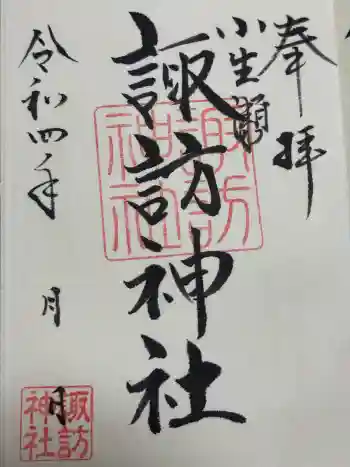 奉拝
小生瀬
諏訪神社
諏訪
神社
令和四年
月
月
諏訪
神社